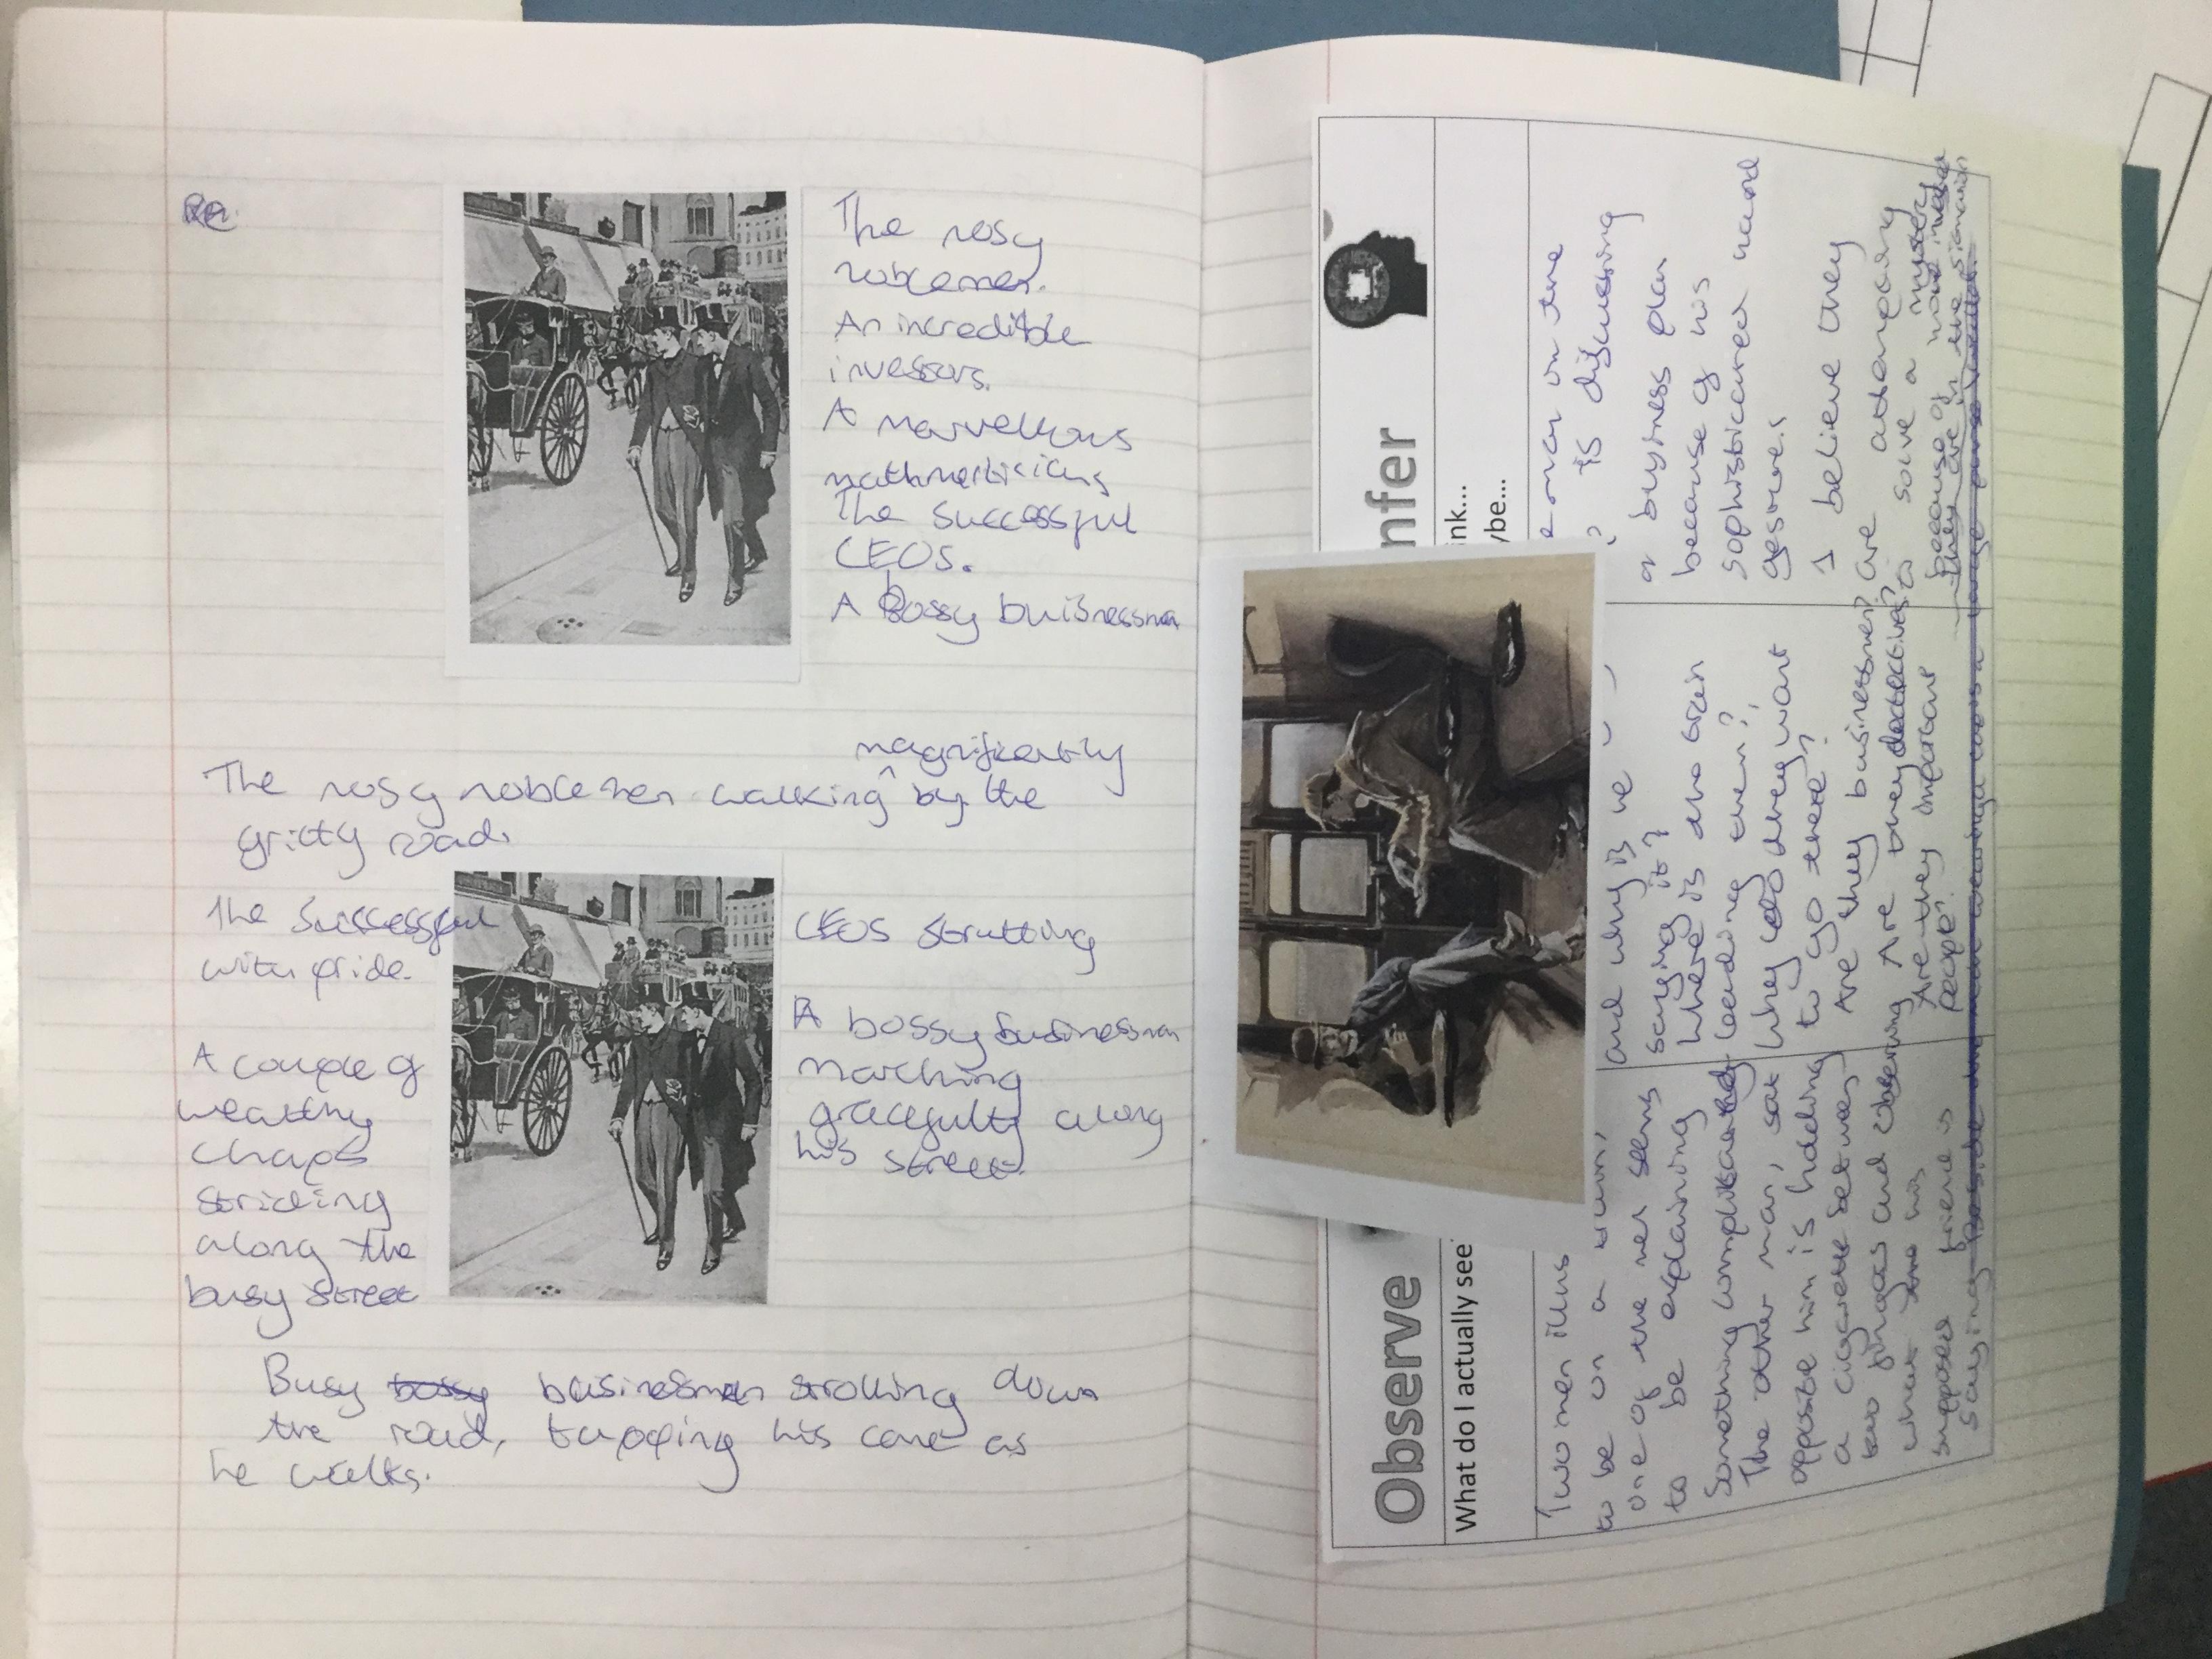 The rosy
noblemen.
An incredible
investors.
A marvellous
mathmeticians
The successful
CEOS.
A bossy buisnessman
magnificently
The rosy noblemen walking by the
gritty road.
The successful CEOS strutting
with pride.
A bossy businessman
marching
gracefully along
his street.
A couple of
wealthy
chaps
striding
along the
busy street
Busy bossy businessman strolling down
the road, tapping his cane as
he walks.
Observe
What do I actually see
Two men
to be on a
one of the men seems
to be explaining
something
The other man, sat
opposite him is holding
a cigarette between
two fingers and observing
what his
supposed friend is
saying
and why is he
saying it?
Where is the train
leading them?
Why do they want
to go there?
Are they businessmen?
Are they detectives?
Are they important
people?
nfer
ink...
ybe...
man on the
is discussing
a business plan
because of his
sophisticated hand
gestures
I believe they
are attempting
to solve a mystery
because of
they are in the